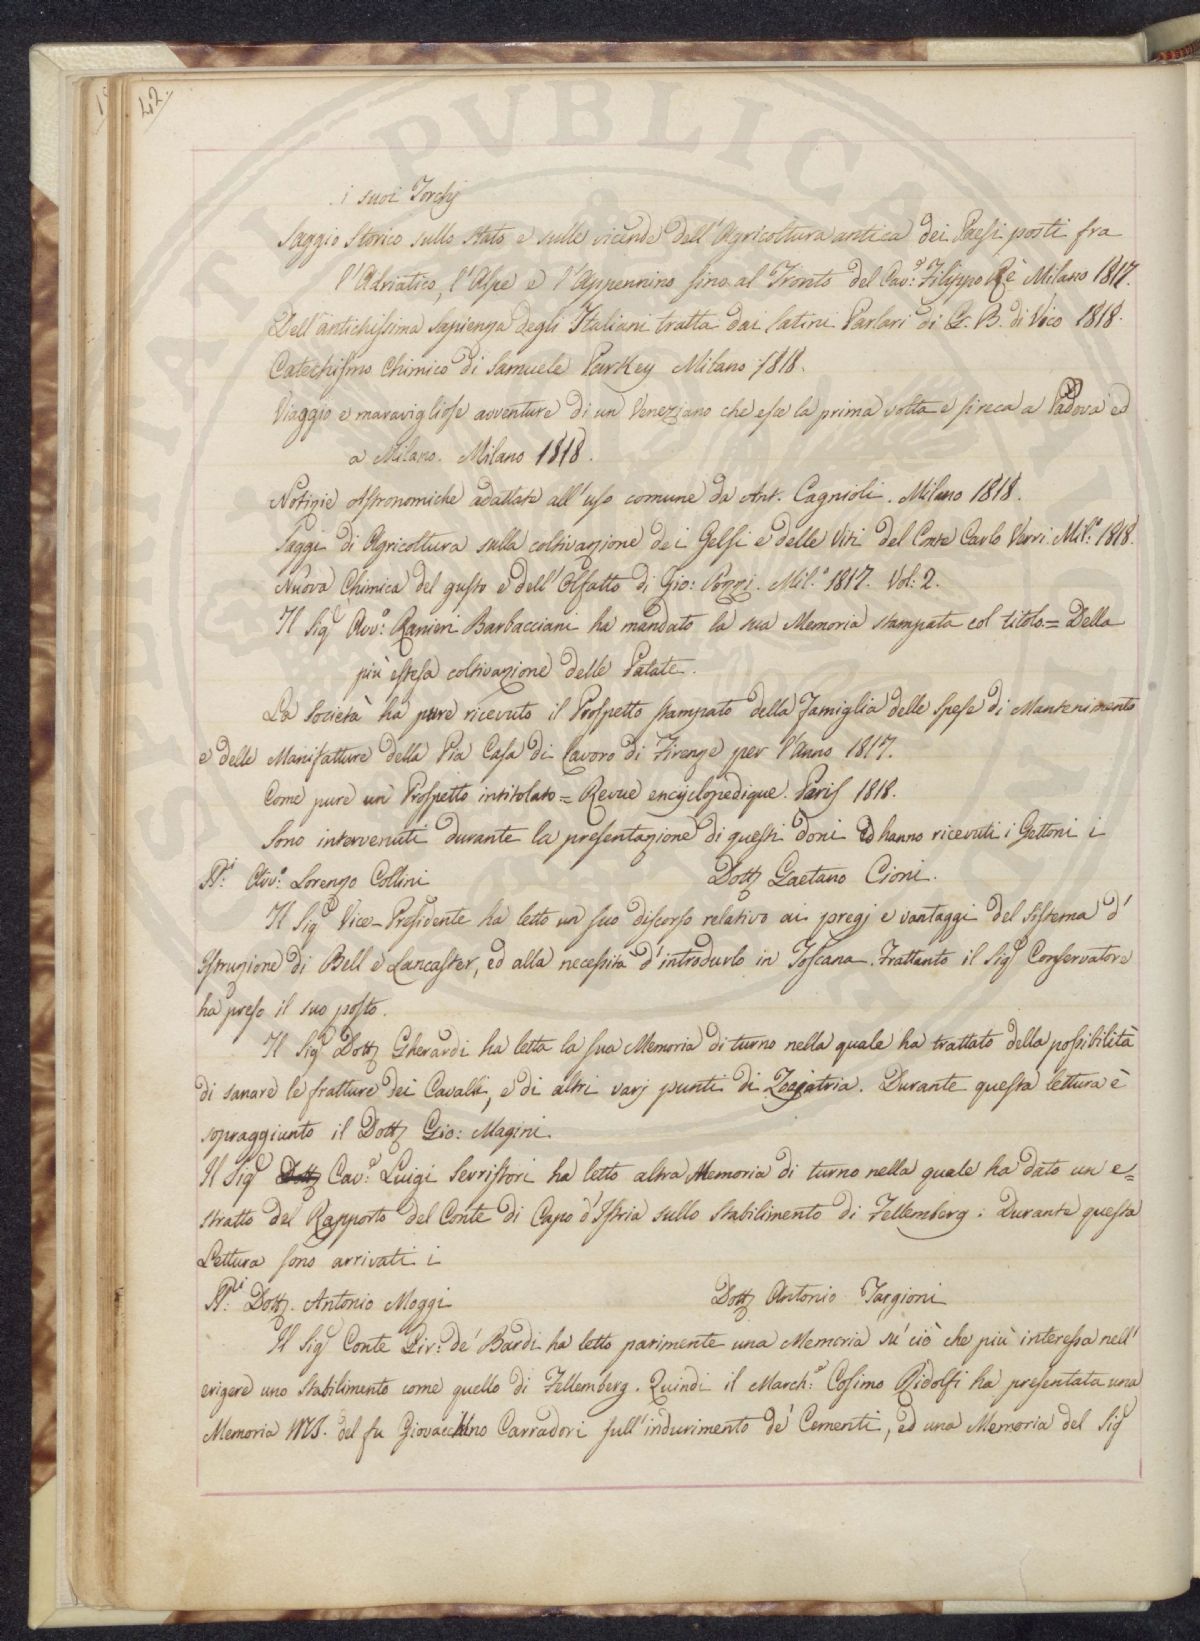 42.
i suoi Torchj
Saggio Storico sullo stato e sulle vicende dell'Agricoltura antica dei Paesi posti fra
l'Adriatico, l'Alpe e l'Appennino sino al Tronto del Cav.e Filippo Rè Milano 1817.
Dell'antichissima sapienza degli Italiani tratta dai latini Parlari di G. B. di Vico 1818.
Catechismo Chimico di Samuele Parkey Milano 1818.
Viaggio e maravigliose avventure di un Veneziano che esce la prima volta e si reca a Padova ed
a Milano. Milano 1818.
Notizie Astronomiche adattate all'uso comune da Ant. Cagnioli. Milano 1818.
Saggi di Agricoltura sulla coltivazione dei Gelsi e delle Viti del Conte Carlo Verri. Mil.o 1818.
Nuova Chimica del gusto e dell'Olfatto di Gio: Pozzi. Mil.o 1817. Vol: 2.
Il Sig.r Avv.o Ranieri Barbacciani ha mandato la sua Memoria stampata col titolo = Della
più estesa coltivazione delle Patate.
La Società ha pure ricevuto il Prospetto stampato della Famiglia delle Spese di Mantenimento
e delle Manifatture della Pia Casa di Lavoro di Firenze per l'Anno 1817.
Come pure un Prospetto intitolato = Revue encyclopedique. Paris 1818.
Sono intervenuti durante la presentazione di questi doni ed hanno ricevuti i Gettoni i
SS.ri Avv.o Lorenzo Collini Dott. Gaetano Cioni.
Il Sig.r Vice-Presidente ha letto un suo discorso relativo ai pregj e vantaggi del Sistema d'
Istruzione di Bell e Lancaster, ed alla necessità d'introdurlo in Toscana. Trattanto il Sig.r Conservatore
ha preso il suo posto.
Il Sig.r Dott. Gherardi ha letta la sua Memoria di turno nella quale ha trattato della possibilità
di sanare le fratture dei Cavalli, e di altri varj punti di Zoojatria. Durante questa lettura è
sopraggiunto il Dott. Gio: Magini.
Il Sig.r Dott. Cav.e Luigi Serristori ha letto altra Memoria di turno nella quale ha dato un e=
stratto del Rapporto del Conte di Capo d'Istria sullo Stabilimento di Fellemberg. Durante questa
Lettura sono arrivati i
SS.ri Dott. Antonio Moggi Dott. Antonio Targioni
Il Sig.r Conte Gir: de' Bardi ha letto parimente una Memoria su' ciò che più interessa nell'
erigere uno Stabilimento come quello di Fellemberg. Quindi il March.e Cosimo Ridolfi ha presentata una
Memoria MS. del fu Giovacchino Carradori sull'indurimento de' Cementi, ed una Memoria del Sig.r